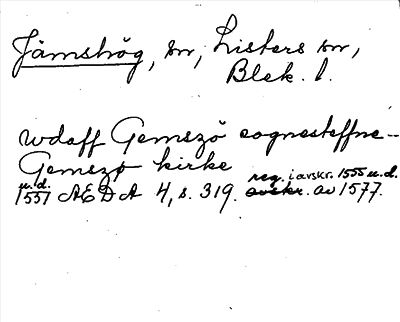 Jämshög, sn, Listers hd,
Blek. l.
wdaff Gemszö sognesteffne -
Gemszø kirke
u.d. 1551 AEDA 4, s. 319. reg. i avskr. 1555 u.d. avskr. av 1577.